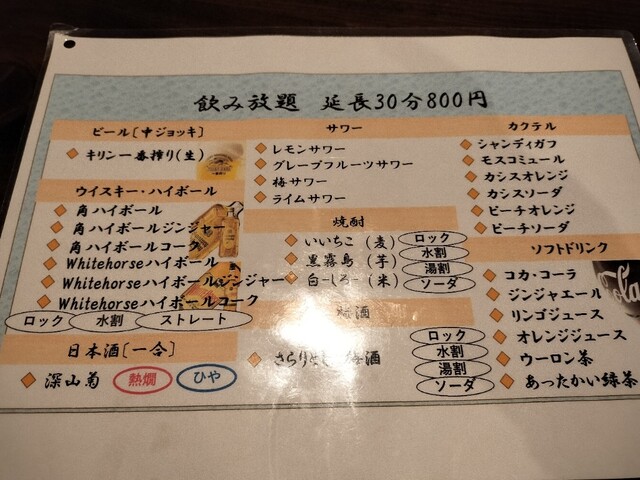 飲み放題 延長30分800円
ビール〔中ジョッキ〕
キリン一番搾り(生)
ウイスキー・ハイボール
角ハイボール
角ハイボールジンジャー
角ハイボールコーク
Whitehorseハイボール
Whitehorseハイボールジンジャー
Whitehorseハイボールコーク
ロック 水割 ストレート
日本酒〔一合〕
深山菊 熱燗 ひや
サワー
レモンサワー
グレープフルーツサワー
梅サワー
ライムサワー
焼酎
いいちこ（麦）
黒霧島（芋）
白-しろ-（米）
ロック
水割
湯割
ソーダ
梅酒
さらりとした梅酒
ロック
水割
湯割
ソーダ
カクテル
シャンディガフ
モスコミュール
カシスオレンジ
カシスソーダ
ピーチオレンジ
ピーチソーダ
ソフトドリンク
コカ・コーラ
ジンジャエール
リンゴジュース
オレンジジュース
ウーロン茶
あったかい緑茶